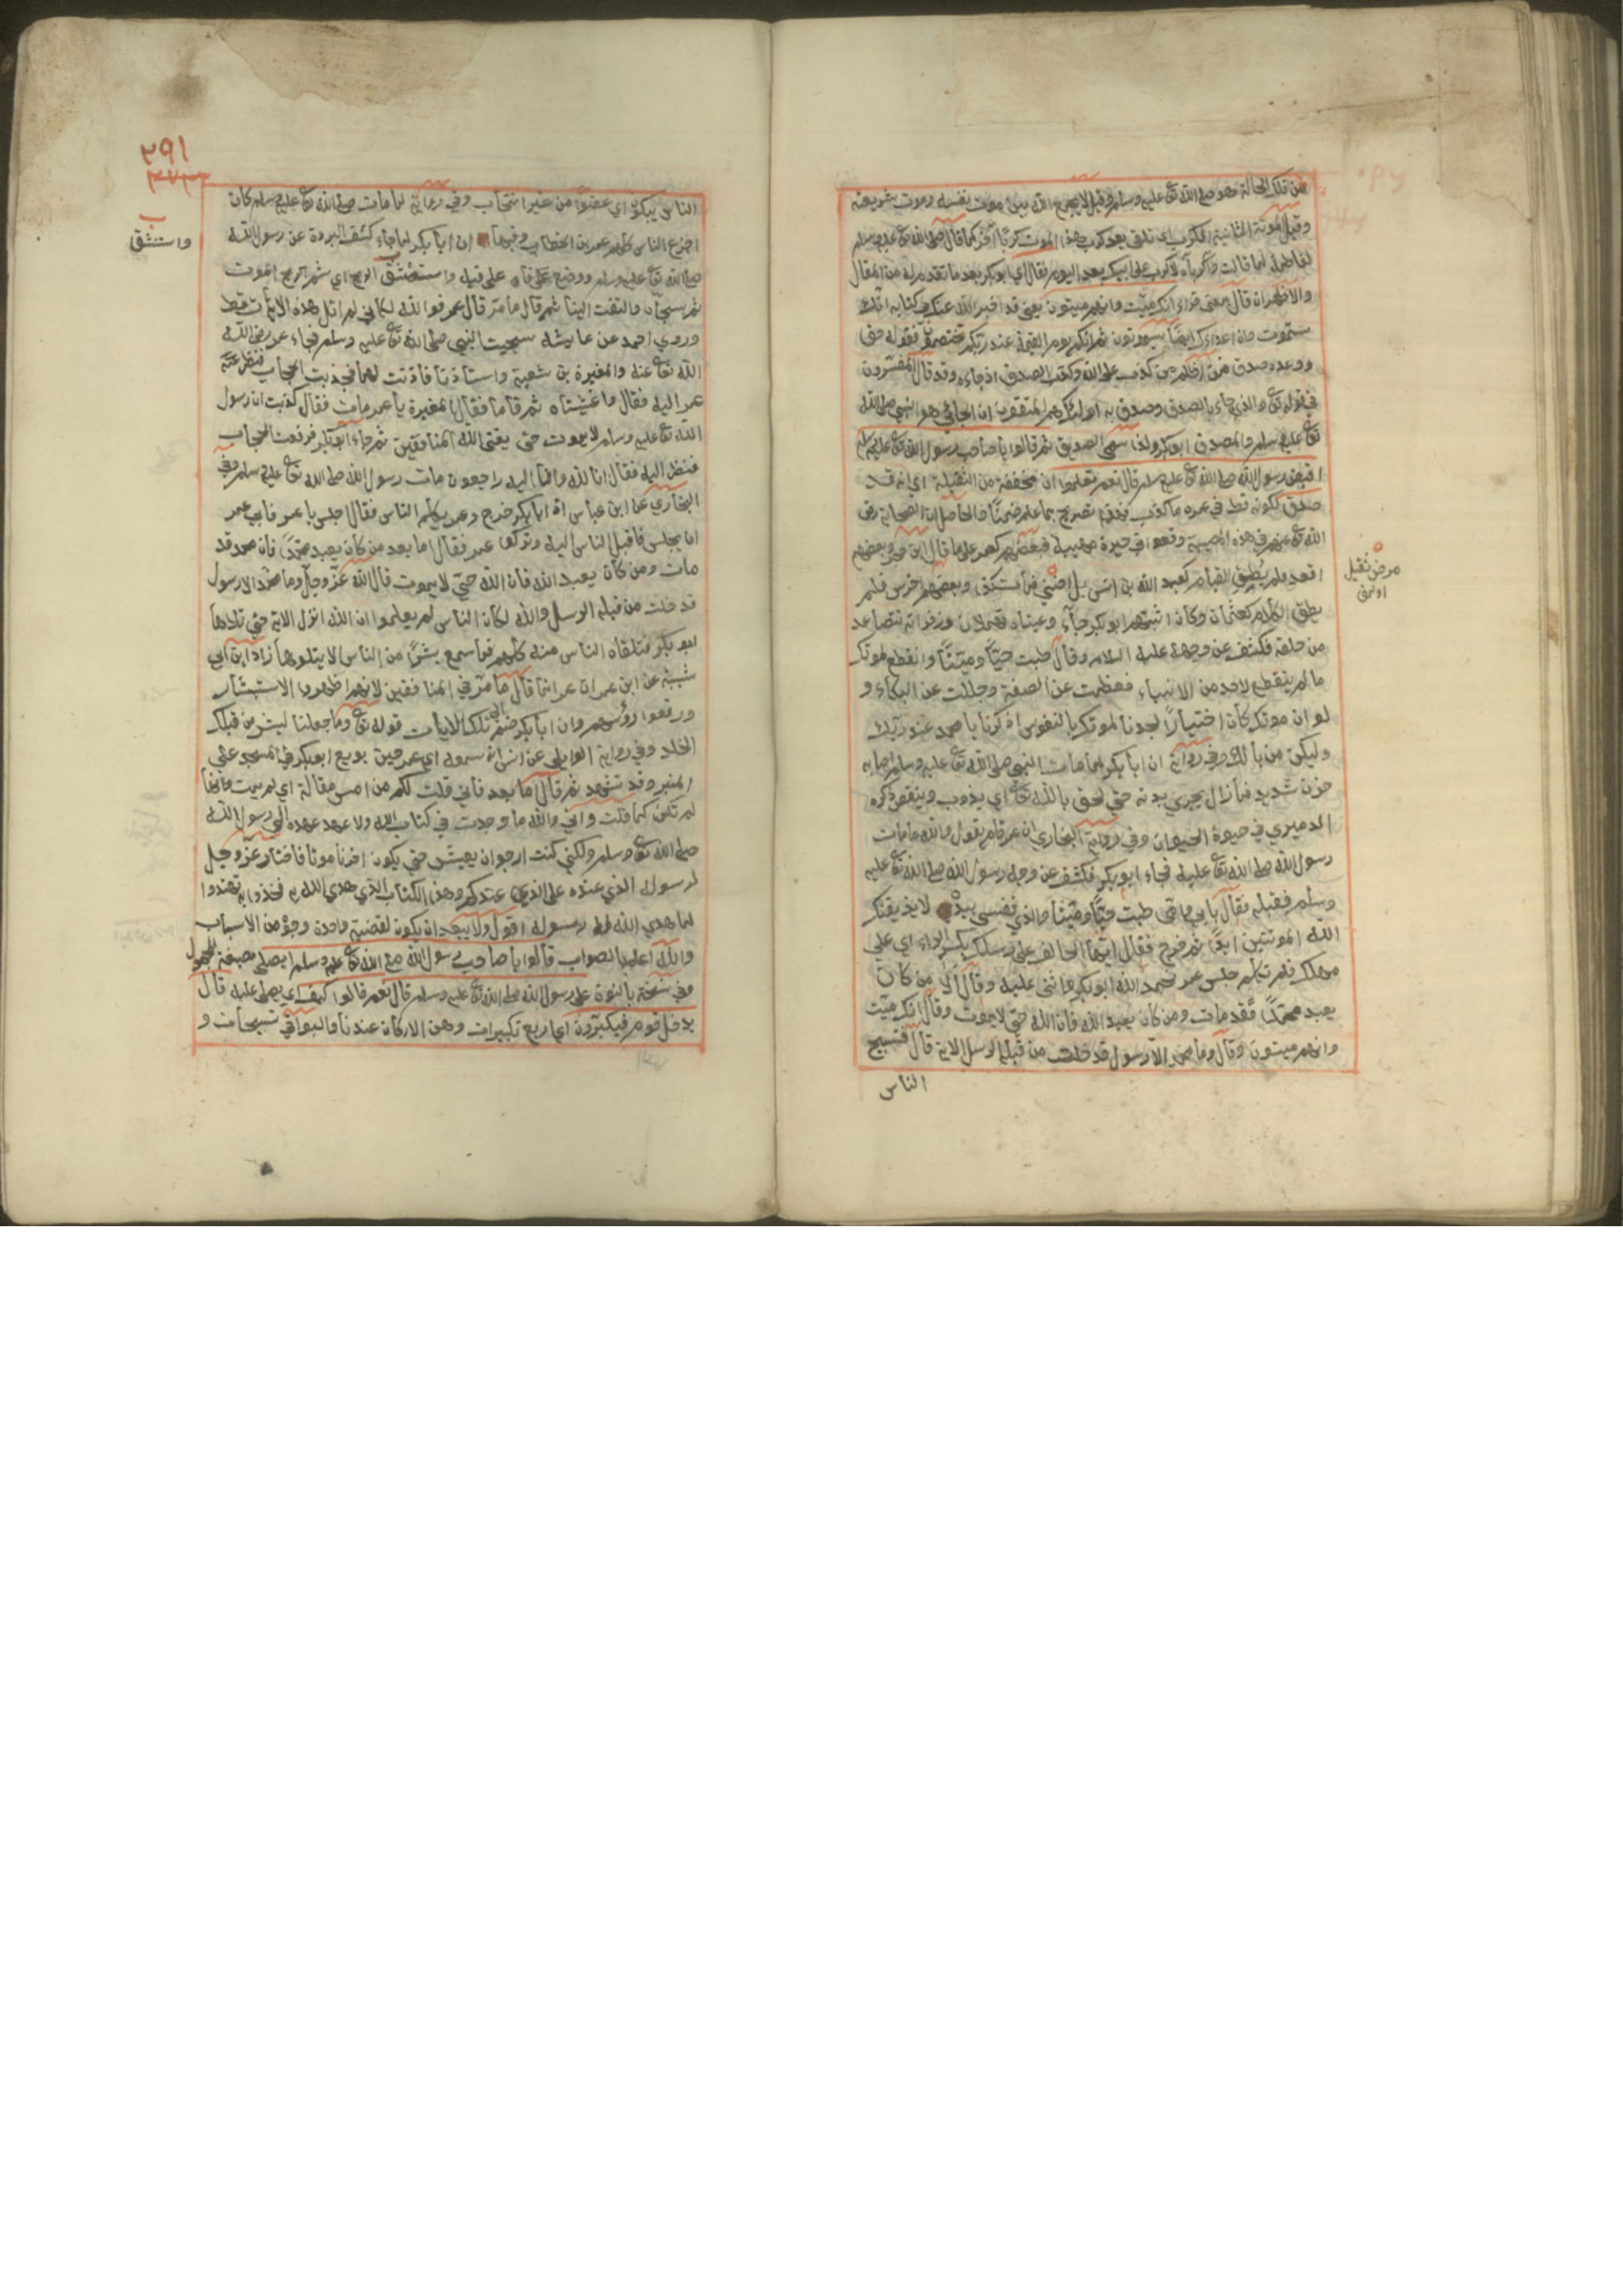 من تلك الحالة هو صلى الله تع عليه وسلم وقيل لا يجمع الله بين موت نفسه وموت شريعته
وقيل الموتة الثانية الكرب اي لا تلقى بعد كرب هذا الموت كربا آخر كما قال صلى الله تع عليه وسلم
لفاطمة لما قالت واكرباه لا كرب على ابيك بعد اليوم فقال اي ابو بكر بعد ما تقدم له من المقال
والاظهر ان قال معنى قراء انك ميت وانهم ميتون يعني قد اخبر الله عنك في كتابه انك
ستموت وان اعداءك ايضا سيموتون ثم انكم يوم القيمة عند ربكم تختصمون فقوله حق
ووعده صدق فمن اظلم ممن كذب على الله وكذب بالصدق اذ جاءه وقد قال المفسرون
في قوله تع والذي جاء بالصدق وصدق به اولئك هم المتقون ان الجائي هو النبي صلى الله
تع عليه وسلم والمصدق ابو بكر ولذا سمي الصديق ثم قالوا يا صاحب رسول الله تع عليه وسلم
اقبض رسول الله صلى الله تع عليه وسلم قال نعم فعلموا ان مخففة من الثقيلة اي انه قد
صدق لكونه قط في عمره ما كذب تصريح بما علم ضمنا والحاصل ان الصحابة رض
الله تع عنهم في هذه المصيبة وقعوا في حيرة مهيبة فبعضهم كعمر على ما قال ابن حجر وبعضهم
اقعد فلم يطق القيام كعبد الله بن انس بل اضني فمات كمدا وبعضهم خرس فلم
يطق الكلام كعثمان وكان اثبتهم ابو بكر جاء وعيناه تهملان وزفراته تتصاعد
من حلقه فكشف عن وجهه عليه السلام وقال طبت حيا وميتا وانقطع لموتك
ما لم ينقطع لاحد من الانبياء فعظمت عن الصفة وجللت عن البكاء و
لو ان موتك كان اختيارا لجدنا لموتك بالنفوس اذكرنا يا محمد عند ربك
وليكن من بالك وفي رواية ان ابا بكر لما مات النبي صلى الله تع عليه وسلم اصابه
حزن شديد فما زال يجري بدنه حتى لحق بالله تع اي يذوب وينقص ذكره
الدميري في حيوة الحيوان وفي رواية البخاري ان عمر قام يقول والله ما مات
رسول الله صلى الله تع عليه فجاء ابو بكر فكشف عن وجه رسول الله صلى الله تع عليه
وسلم فقبله فقال بابي وامي طبت حيا وميتا والذي نفسي بيده لا يذيقنك
الله الموتتين ابدا ثم خرج فقال ايها الحالف على رسلك بكسر الراء اي على
مهلك فلم تكلم جلس عمر فحمد الله ابو بكر واثنى عليه وقال الا من كان
يعبد محمدا فقد مات ومن كان يعبد الله فان الله حي لا يموت وقال انك ميت
وانهم ميتون وقال وما محمد الا رسول قد خلت من قبله الرسل الاية قال فنشج
الناس
مرض ثقيل
اولمق
٢٩١
واستنشق
الناس يبكون اي عضوا من غير انتحاب وفي رواية لما مات صلى الله تع عليه وسلم كان
اجزع الناس كلهم عمر بن الخطاب وفيها ان ابا بكر لما جاء كشف البردة عن رسول الله
صلى الله تع عليه وسلم ووضع فاه على فيه واستنشق الريح اي شم ريح الموت
ثم سجاه والتفت الينا ثم قال ما مر قال عمر فوالله لكاني لم اتل هذه الايات قط
وروى احمد عن عايشه سجيت النبي صلى الله تع عليه وسلم فجاء عمر رضي الله
الله تع عنه والمغيرة بن شعبة واستأذنا فاذنت لهما فجذبت الحجاب فنظر عمر
عمر اليه فقال واغشيتاه ثم قاما فقال المغيرة يا عمر مات فقال كذبت ان رسول
الله تع عليه وسلم لا يموت حتى يفني الله المنافقين ثم جاء ابو بكر فرفعت الحجاب
فنظر اليه فقال انا لله وانا اليه راجعون مات رسول الله صلى الله تع عليه وسلم وفي
البخاري عن ابن عباس ان ابا بكر خرج وعمر يكلم الناس فقال اجلس يا عمر فابى عمر
ان يجلس فاقبل الناس اليه وتركوا عمر فقال اما بعد من كان يعبد محمدا فان محمد قد
مات ومن كان يعبد الله فان الله حي لا يموت قال الله عز وجل وما محمد الا رسول
قد خلت من قبله الرسل والله لكان الناس لم يعلموا ان الله انزل الاية حتى تلاها
ابو بكر فتلقاه الناس منه كلهم فما سمع بشرا من الناس الا يتلوها زاد ابن ابي
شيبة عن ابن عمر ان عمر انما قال ما مر في المنافقين لانهم اظهروا الاستبشار
ورفعوا رؤسهم وان ابا بكر ضم الى تلك الايات قوله تع وما جعلنا لبشر من قبلك
الخلد وفي رواية الوايلي عن انس انه سمعه اي عمر حين بويع ابو بكر في المسجد على
المنبر وقد تشهد ثم قال اما بعد فاني قلت لكم من امس مقالة اي لم يمت وانها
لم تكن كما قلت واني والله ما وجدت في كتاب الله ولا عهد عهده الي رسول الله
صلى الله تع وسلم ولكني كنت ارجو ان يعيش حتى يكون اخرنا موتا فاختار عز وجل
لرسوله الذي عنده على الذي عندكم وهذا الكتاب الذي هدى الله به فخذوا به تهتدوا
لما هدي الله له رسوله اقول ولا يبعد ان يكون لقضية واحدة وجوه من الاسباب
والله اعلم بالصواب قالوا يا صاحب رسول الله صلى الله تع عليه وسلم ايصلى بصيغة المجهول
وفي نسخة بالنون على رسول الله صلى الله تع عليه وسلم قال نعم قالوا كيف اي يصلى عليه قال
يدخل قوم فيكبرون اي اربع تكبيرات وهن الاركان عندنا والبواقي تسبيحات و